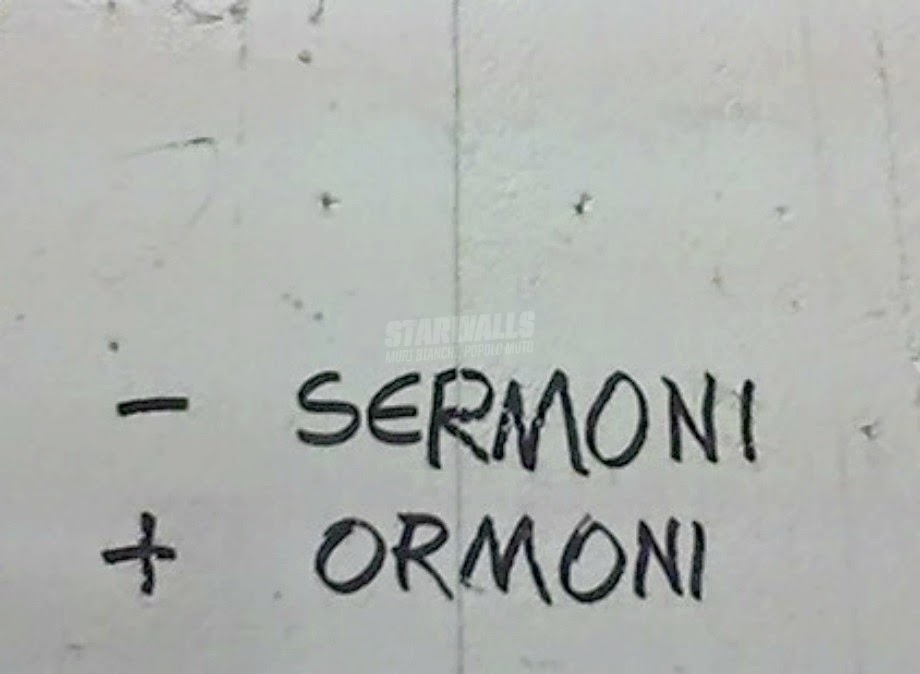 STARWALLS
MURI BIANCHI, POPOLO MUTO
- SERMONI
+ ORMONI